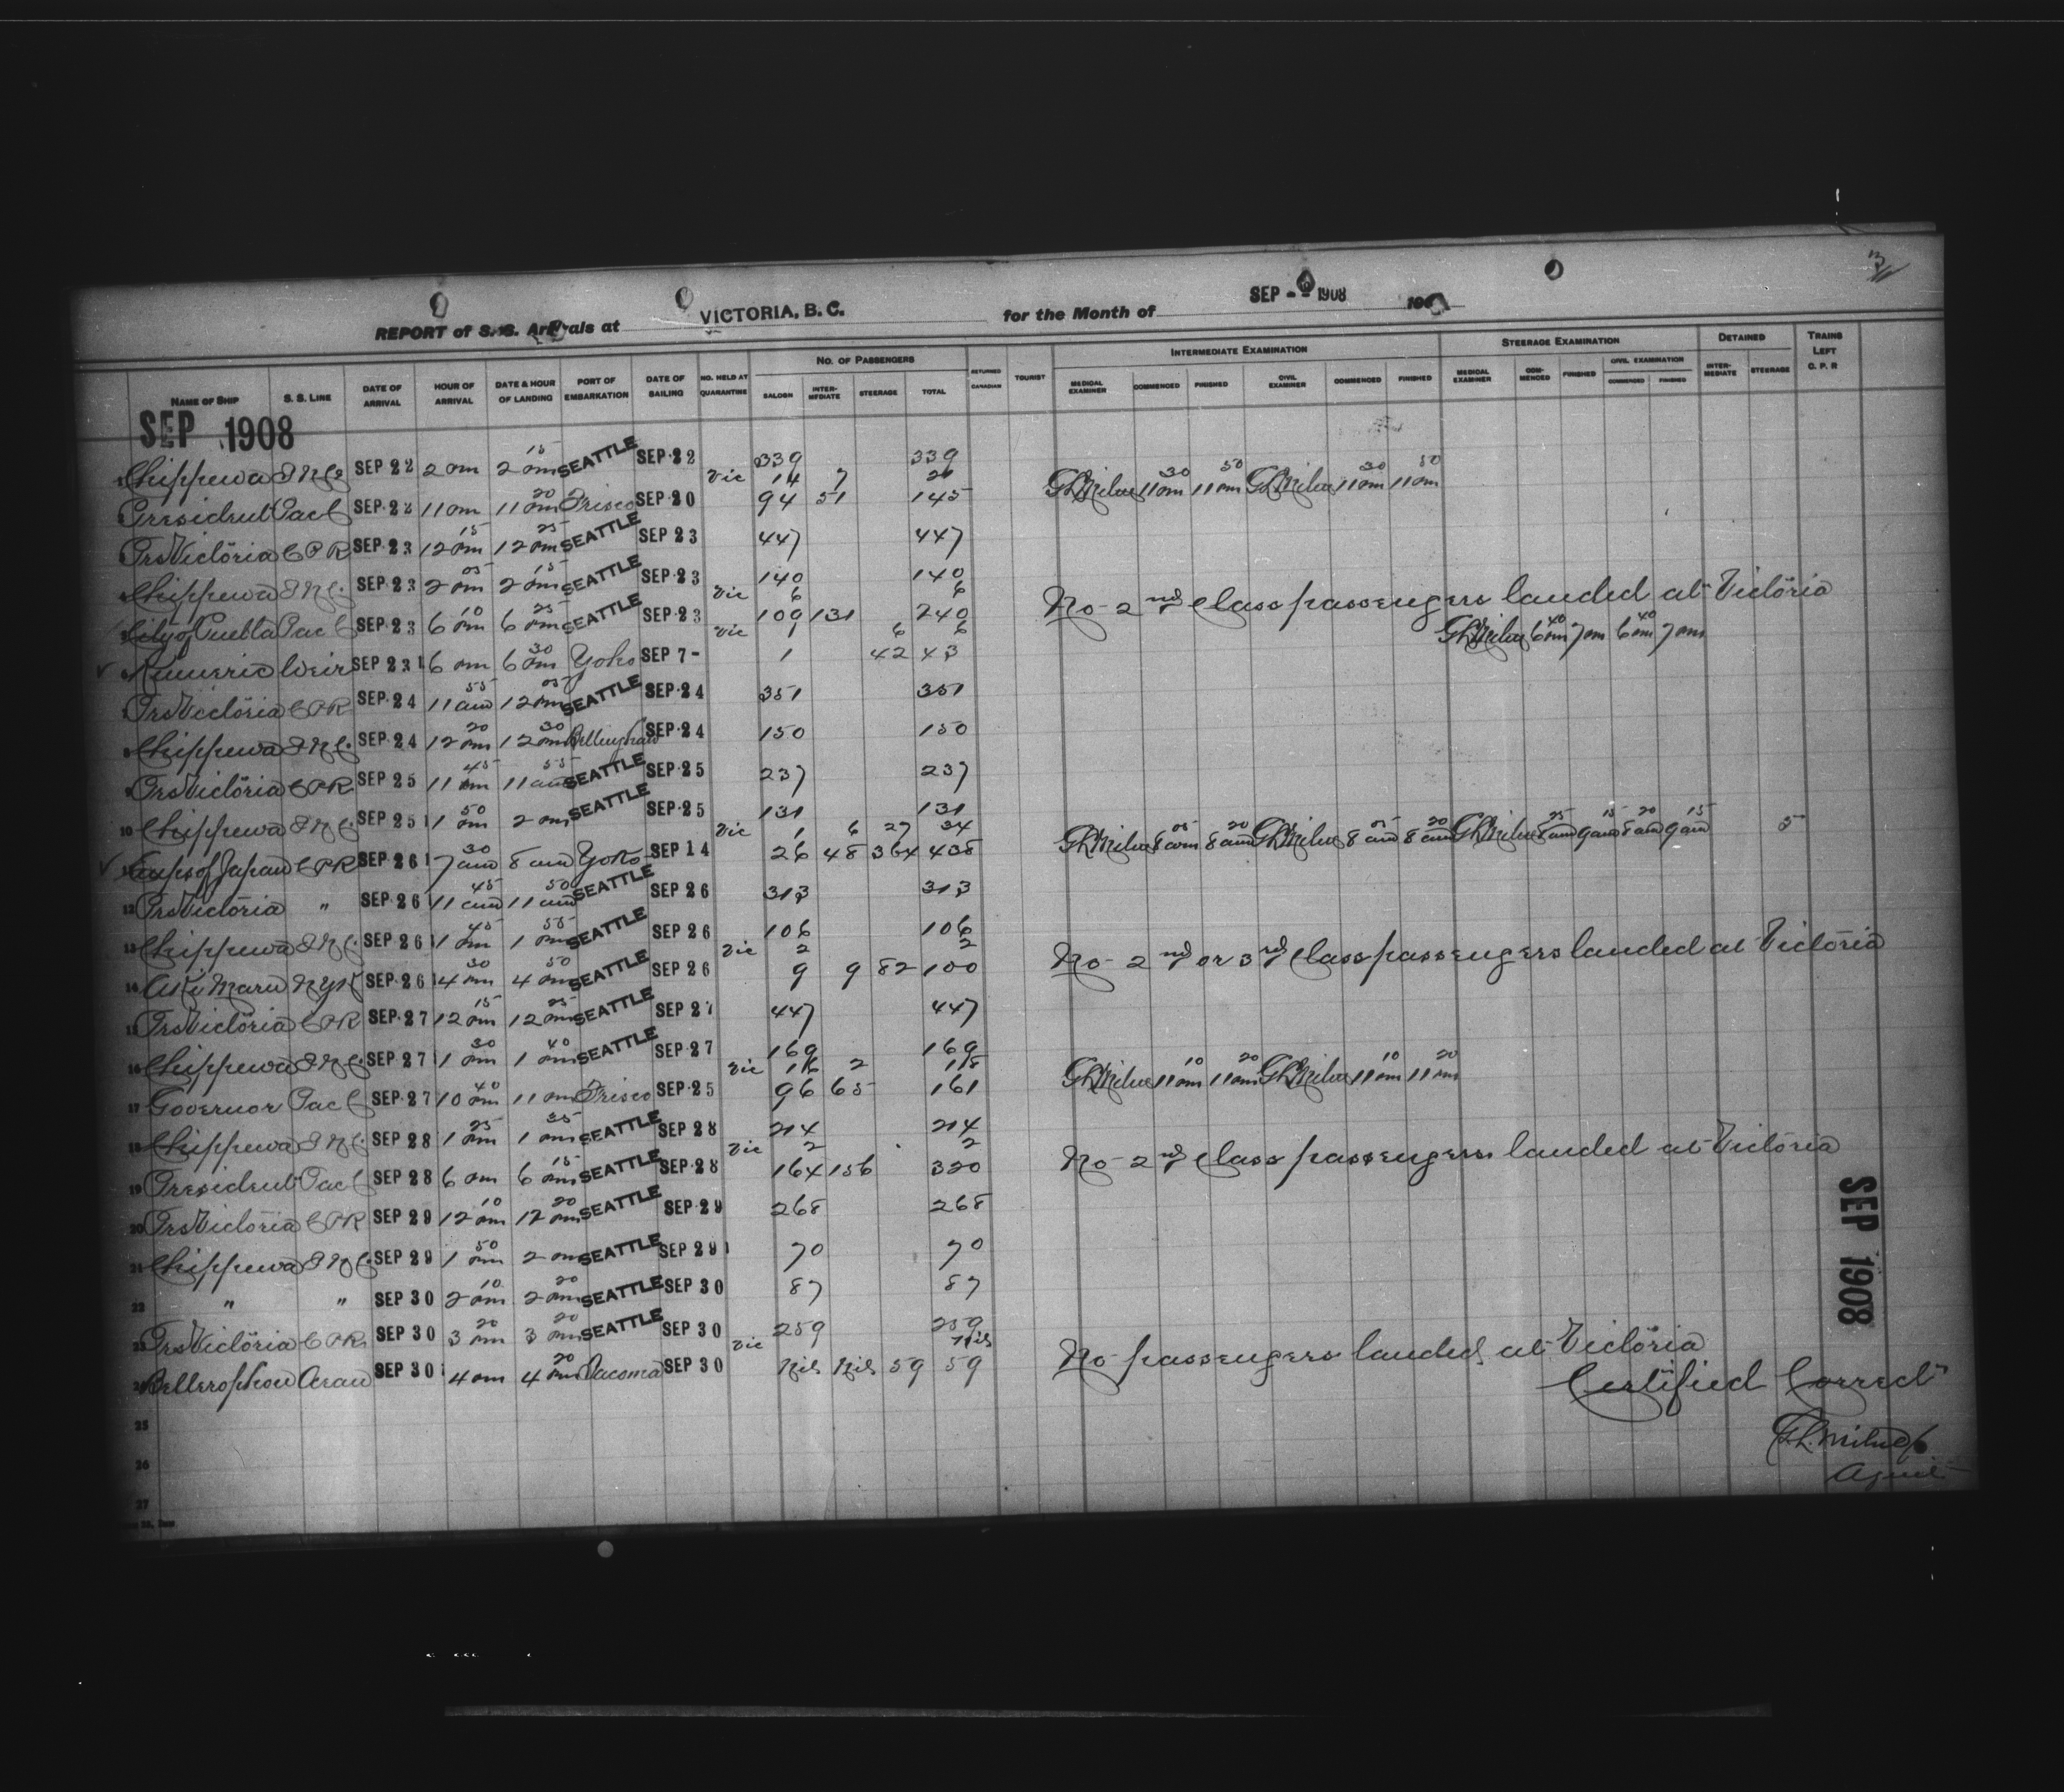 3/
REPORT of S.S. Arrivals at VICTORIA, B.C. for the Month of SEP 1908 190
NAME OF SHIP S. S. LINE DATE OF ARRIVAL HOUR OF ARRIVAL DATE & HOUR OF LANDING PORT OF EMBARKATION DATE OF SAILING NO. HELD AT QUARANTINE NO. OF PASSENGERS SALOON INTERMEDIATE STEERAGE TOTAL RETURNED CANADIAN TOURIST INTERMEDIATE EXAMINATION MEDICAL EXAMINER COMMENCED FINISHED CIVIL EXAMINER COMMENCED FINISHED STEERAGE EXAMINATION MEDICAL EXAMINER COMMENCED FINISHED CIVIL EXAMINATION COMMENCED FINISHED DETAINED INTERMEDIATE STEERAGE TRAINS LEFT C. P. R
SEP 1908
1 Chippewa I N Co SEP 22 2 pm 2 15 pm SEATTLE SEP 22 339 339
Vic 14 7 21
2 President Pac C SEP 22 11 pm 11 20 pm Frisco SEP 20 94 51 145 GLMilne 11 30 pm 11 50 pm GLMilne 11 30 pm 11 50 pm
3 Prs Victoria C P R SEP 23 12 15 pm 12 25 pm SEATTLE SEP 23 447 447
4 Chippewa I N C SEP 23 2 05 pm 2 15 pm SEATTLE SEP 23 140 140
Vic 6 6
5 City of Puebla Pac C SEP 23 6 10 pm 6 25 pm SEATTLE SEP 23 109 131 240 No 2nd class passengers landed at Victoria
Vic 1 6 6
6 Kumeric Weir SEP 23 6 pm 6 30 pm Yoko SEP 7 1 42 43 GLMilne 6 40 pm 7 pm 6 40 pm 7 pm
7 Prs Victoria C P R SEP 24 11 55 am 12 05 pm SEATTLE SEP 24 351 351
8 Chippewa I N C. SEP 24 12 20 pm 12 30 pm Bellingham SEP 24 150 150
9 Prs Victoria C P R SEP 25 11 45 am 11 55 am SEATTLE SEP 25 237 237
10 Chippewa I N C. SEP 25 1 50 pm 2 pm SEATTLE SEP 25 131 131
Vic 1 6 27 34
11 Emps of Japan C P R SEP 26 7 30 am 8 am Yoko SEP 14 26 48 364 438 GLMilne 8 05 am 8 20 am GLMilne 8 05 am 8 20 am GLMilne 8 25 am 9 15 am 8 20 am 9 15 am 5
12 Prs Victoria " SEP 26 11 45 am 11 50 am SEATTLE SEP 26 313 313
13 Chippewa I N C. SEP 26 1 45 pm 1 55 pm SEATTLE SEP 26 106 106
Vic 2 2
14 Aki Maru N Y K SEP 26 4 30 pm 4 50 pm SEATTLE SEP 26 9 9 82 100 No 2nd or 3rd class passengers landed at Victoria
15 Prs Victoria C P R SEP 27 12 15 pm 12 25 pm SEATTLE SEP 27 447 447
16 Chippewa I N C. SEP 27 1 30 pm 1 40 pm SEATTLE SEP 27 169 169
Vic 116 2 118
17 Governor Pac C SEP 27 10 40 pm 11 pm Frisco SEP 25 96 65 161 GLMilne 11 10 pm 11 20 pm GLMilne 11 10 pm 11 20 pm
18 Chippewa I N C. SEP 28 1 25 pm 1 35 pm SEATTLE SEP 28 214 214
Vic 2 2
19 President Pac C SEP 28 6 pm 6 15 pm SEATTLE SEP 28 164 156 320 No 2nd class passengers landed at Victoria
20 Prs Victoria C P R SEP 29 12 10 pm 12 20 pm SEATTLE SEP 29 268 268
21 Chippewa I N C. SEP 29 1 50 pm 2 pm SEATTLE SEP 29 70 70
22 " " SEP 30 2 10 pm 2 20 pm SEATTLE SEP 30 87 87
23 Prs Victoria C P R SEP 30 3 20 pm 3 20 pm SEATTLE SEP 30 259 259
Vic Nil
24 Bellerophon Ocean SEP 30 4 pm 4 20 pm Tacoma SEP 30 Nil Nil 59 59 No passengers landed at Victoria
Certified Correct
25
G.L. Milne
26
Agent
27
SEP 1908